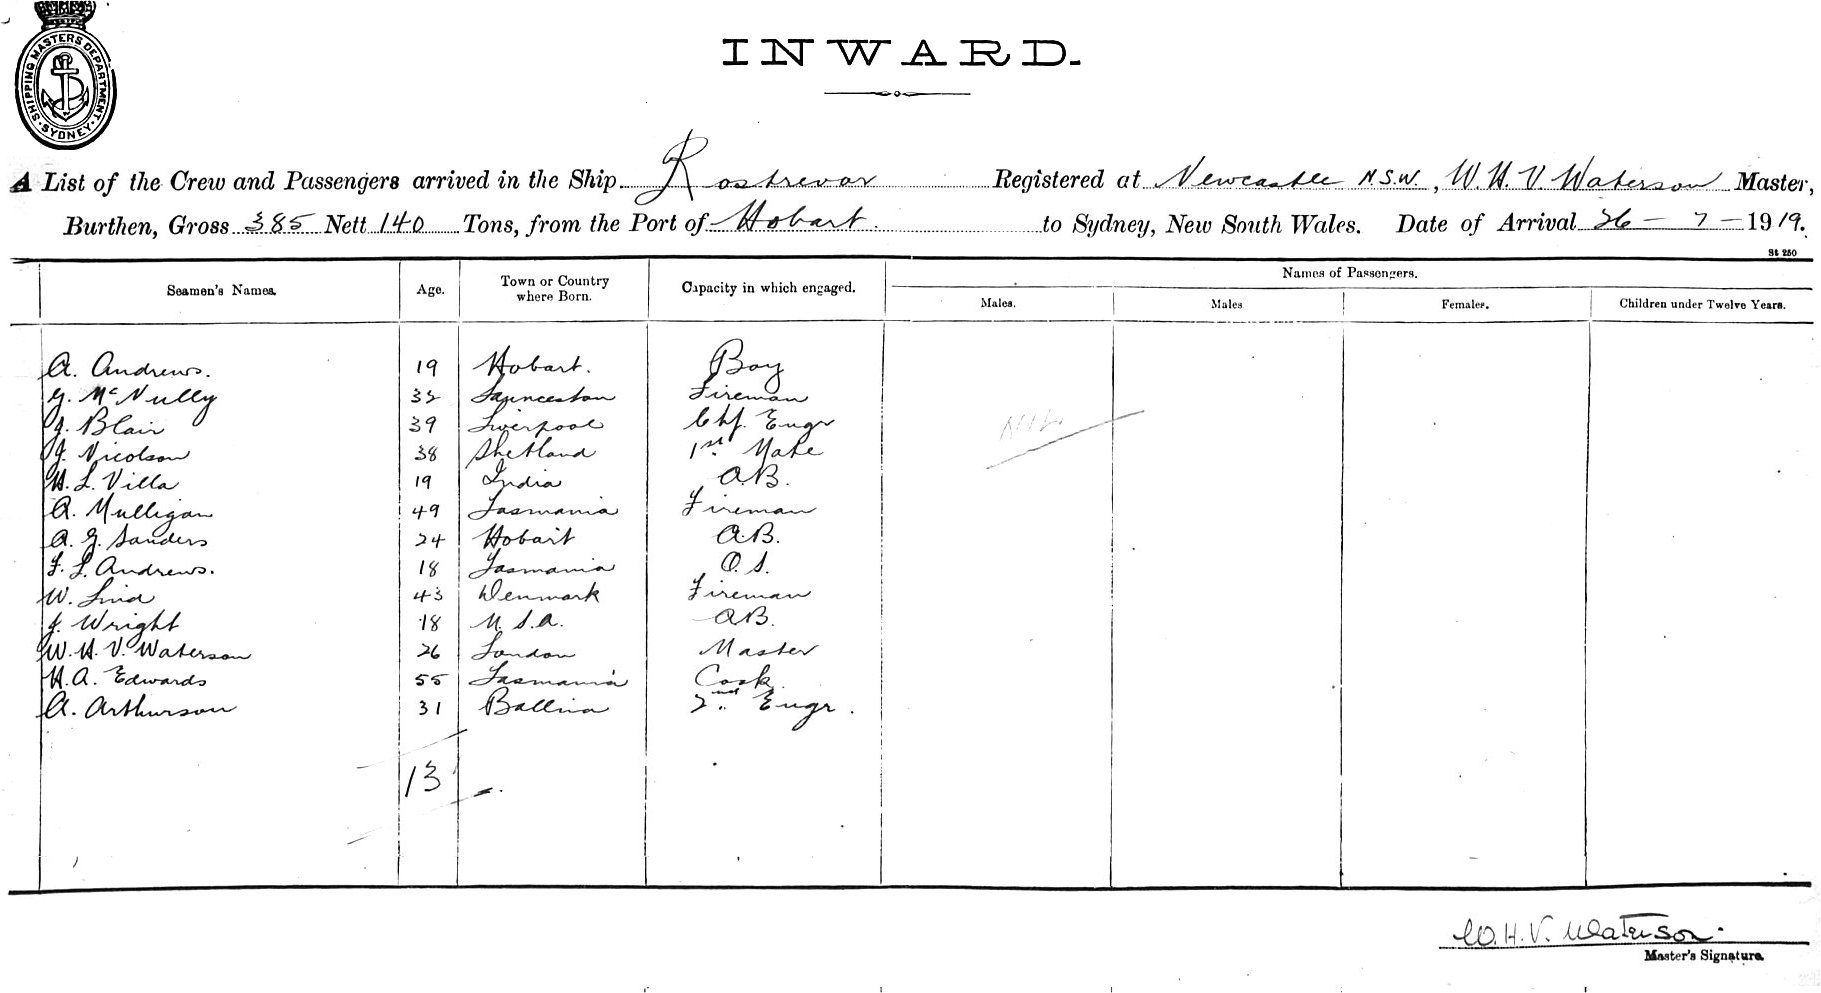 SHIPPING MASTERS DEPARTMENT
SYDNEY
INWARD.
A List of the Crew and Passengers arrived in the Ship Rostrevor Registered at Newcastle N.S.W., W. H. V. Waterson Master,
Burthen, Gross 385 Nett 140 Tons, from the Port of Hobart to Sydney, New South Wales. Date of Arrival 26 - 7 - 1919.
St 250
Seamen's Names. Age. Town or Country where Born. Capacity in which engaged. Names of Passengers.
Males. Males Females. Children under Twelve Years.
A. Andrews. 19 Hobart. Boy
G. McNully 32 Launceston Fireman
J. Blair 39 Liverpool Chf. Engr
J. Nicolson 38 Shetland 1st. Mate
H. L. Villa 19 India A.B.
A. Mulligan 49 Tasmania Fireman
A. G. Sanders 24 Hobart A.B.
F. L. Andrews. 18 Tasmania O.S.
W. Lind 43 Denmark Fireman
J. Wright 18 U.S.A. A.B.
W. H. V. Waterson 26 London Master
H. A. Edwards 55 Tasmania Cook
A. Arthurson 31 Ballina 2nd. Engr.
Nil
13
W. H. V. Waterson.
Master's Signature.